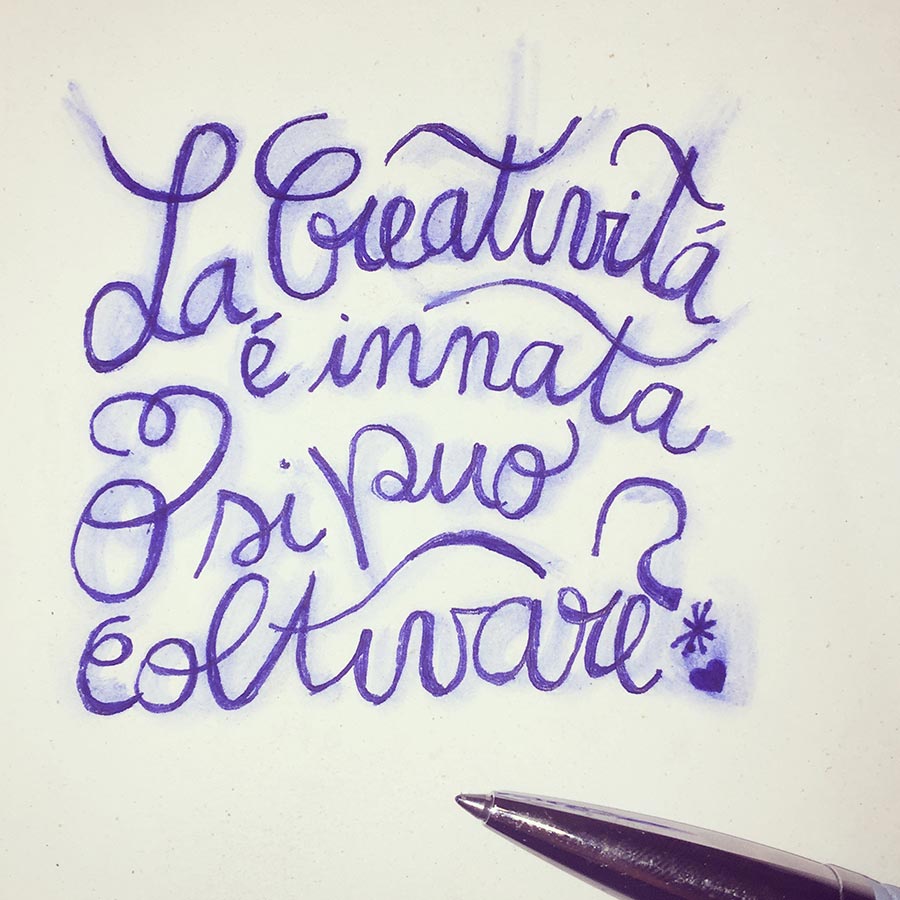 La Creativitá
é innata
O si puo
coltivare?